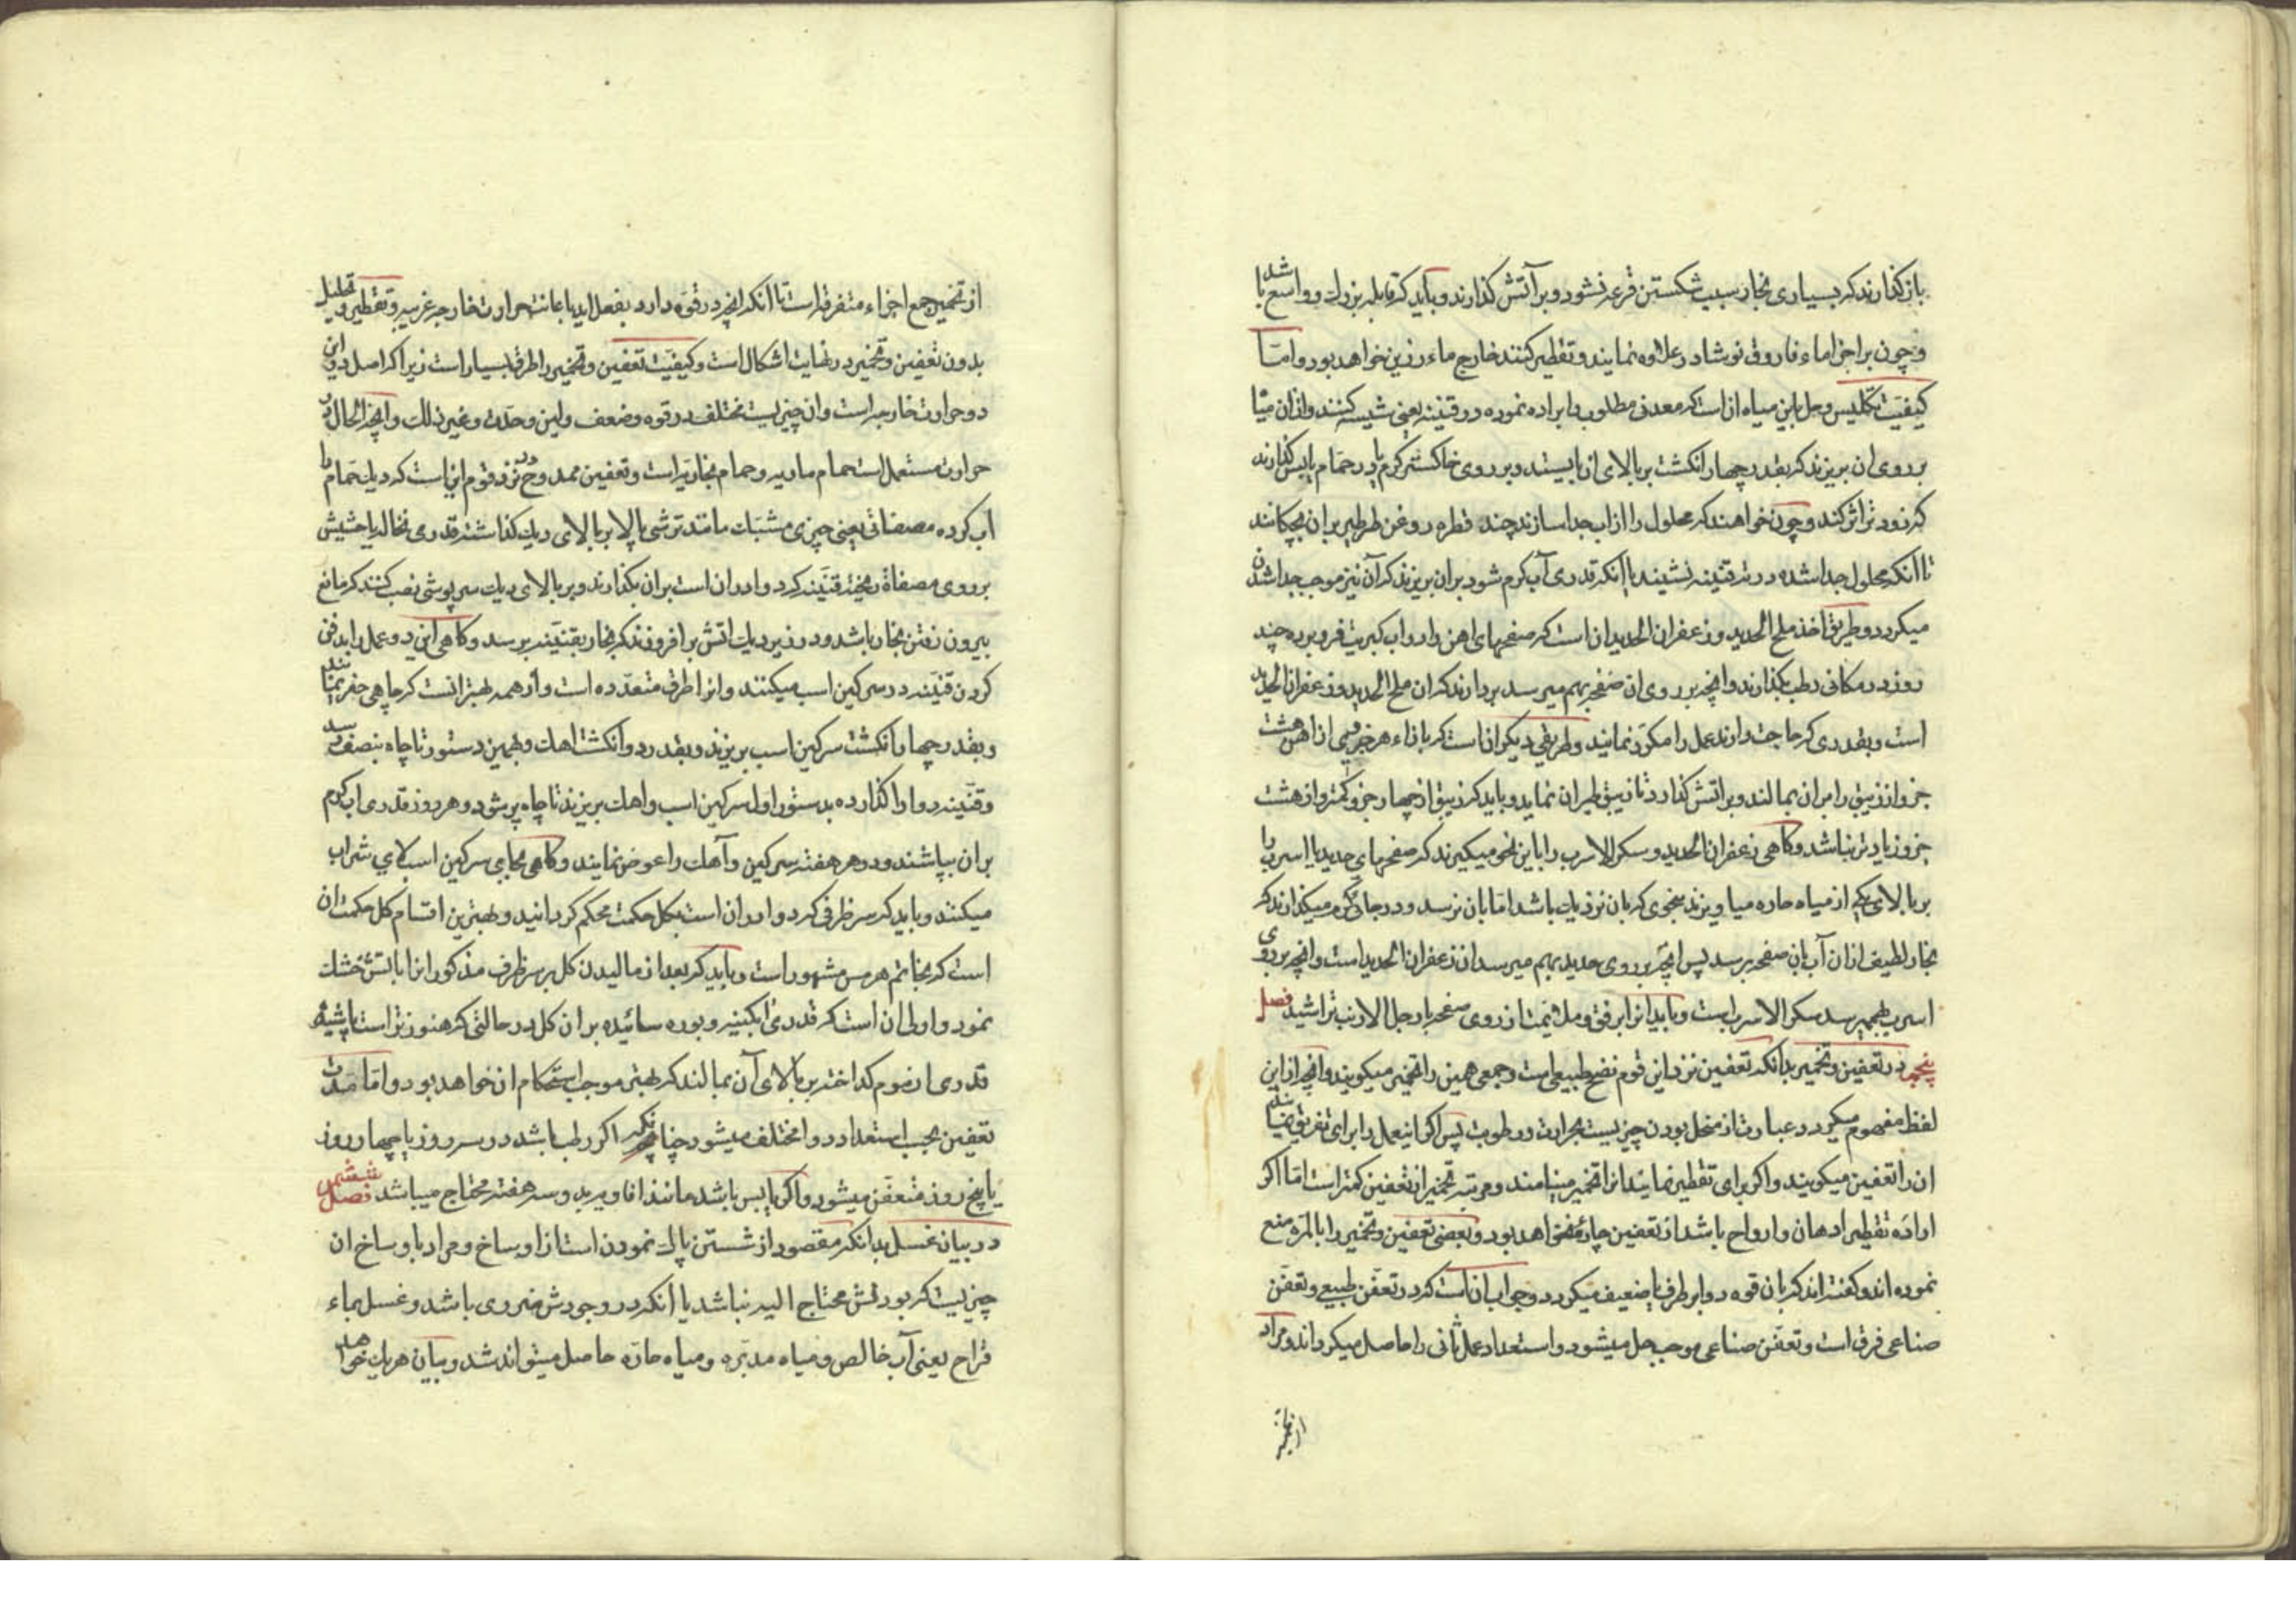 باز گذارند که بسیاری بخار سبب شکستن قرعه نشود و بر آتش گذارند و باید که قابله بزرك و واسع باشد
و چون بر اجزاء ماء فاروق نوشادر علاوه نمایند و تقطیر کنند خارج ماء رزین خواهد بود و امّا
کیفیّت تکلیس و حل باین میاه ان است که معدنی مطلوب را براده نموده در قنینه یعنی شیشه کنند و از ان میاه
بر روی ان بریزند که بقدر چهار انکشت بر بالای ان بایستد و بر روی خاکستر کرم یا در حمّام یابس گذارند
که زودتر اثر کند و چون خواهند که محلول را از اب جدا سازند چند قطره روغن طرطیر بران بچکانند
تا انکه محلول جدا شده در ته قنینه نشیند یا انکه قدری آب کرم شور بران بریزند که آن نیز موجب جدا شدن
میکردد و طریق اخذ ملح الحدید و زعفران الحدید ان است که صفحهای اهن را در اب کبریت فرو برده چند
روز در مکانی رطب بگذارند و انچه بر روی ان صفحه بهم میرسد بردارند که ان ملح الحدید و زعفران الحدید
است و بقدری که حاجت دارند عمل را مکرّر نمایند و طریقی دیکر ان است که بازاء هر جزوی از اهن هشت
جزو از زیبق را بران بمالند و بر اتش گذارد تا زیبق طیران نماید و باید که زیبق از چهار جزو کمتر و از هشت
جزو زیادتر نباشد و کاهی زعفران الحدید و سکر الاسرب را باین نحو میکیرند که صفحهای حدید یا اسرب را
بر بالای یکی از میاه حاره میاویزند بنحوی که بان نزدیك باشد امّا بان نرسد و در جائی کرم میگذارند که
بخار لطیف از ان آب بان صفحه برسد پس انچه بر روی حدید بهم میرسد ان زعفران الحدید است و انچه بر روی
اسرب بهم میرسد سکر الاسرب است و باید انرا برفق و ملایمت از روی صفحه با رجل الارنب تراشید فصل
پنجم در تعفین و تخمیر بدانکه تعفین نزد این قوم نضج طبیعی است و جمعی همین را تخمیر میکویند و انچه از این
لفظ مفهوم میکردد عبارت از منحل بودن چیزیست بحرارت و رطوبت پس اکر اینعمل را برای تفریق نمایند
ان را تعفین میکویند و اکر برای تقطیر نمایند انرا تخمیر مینامند و مرتبه تخمیر از تعفین کمتر است امّا اکر
اراده تقطیر ادهان و ارواح باشد از تعفین چاره نخواهد بود و بعضی تعفین و تخمیر را بالمره منع
نموده اند و کفته اند که بان قوه دوا بر طرف یا ضعیف میکردد و جواب ان است که در تعفن طبیعی و تعفن
صناعی فرق است و تعفن صناعی موجب حل میشود و استعداد عمل ثانی را حاصل میکرداند و مراد
از تخمیر
از تخمیر جمع اجزاء متفرقه است تا انکه انچه در قوّه دارد بفعل اید باعانت حرارت خارجه غریبه و تقطیر و تحلیل
بدون تعفین و تخمیر در نهایت اشکال است و کیفیّت تعفین و تخمیر را طرق بسیار است زیرا که اصل در این
دو حرارت خارجه است و ان چیزیست مختلف در قوه و ضعف و لین و حدّت و غیر ذلك و انچه الحال در
حرارت مستعمل است حمام ماریه و حمام بخاریّه است و تعفین ممدوح تر نزد قوم این است که دیك حمّام را
اب کرده مصفاتی یعنی چیزی مشبّك مانند ترشی پالا بر بالای دیك گذاشته قدری نخاله یا حشیش
بر روی مصفاة ریخته قنّینه که دوا در ان است بران بگذارند و بر بالای دیك سرپوشی نصب کنند که مانع
بیرون رفتن بخار باشد و در زیر دیك اتش برافروزند که بخار بقنّینه برسد و کاهی این دو عمل را بدفن
کردن قنّینه در سرکین اسب میکنند و انرا طرق متعدّده است و از همه بهتر انست که چاهی حفر نمایند
و بقدر چهار انکشت سرکین اسب بریزند و بقدر دو انکشت اهك و بهمین دستور تا چاه بنصف رسد
و قنّینه دوا را گذارده بدستور اول سرکین اسب و اهك بریزند تا چاه پر شود و هر روز قدری اب کرم
بران بپاشند و در هر هفته سرکین و آهك را عوض نمایند و کاهی بجای سرکین اسب لای شراب
میکنند و باید که سر ظرفی که دوا در ان است بکل حکمت محکم کردانید و بهترین اقسام کل حکمت ان
است که بخاتم هرمس مشهور است و باید که بعد از مالیدن کل بر سر ظرف مذکور انرا باتش خشك
نمود و اولی ان است که قدری ابکینه و بوره سائیده بران کل در حالتی که هنوز تر است پاشیده
قدری از موم کداخته بر بالای آن بمالند که بهتر موجب استحکام ان خواهد بود و امّا مدّت
تعفین بحسب استعداد دوا مختلف میشود چنانکه اکر رطب باشد در سه روز یا چهار روز
یا پنج روز متعفّن میشود و اکر یابس باشد مانند افاویه بدو سه هفته محتاج میباشد فصل ششم
در بیان غسل بدانکه مقصود از شستن پاك نمودن است از اوساخ و مراد باوساخ ان
چیزیست که بودنش محتاج الیه نباشد یا انکه در وجودش ضرری باشد و غسل بماء
قراح یعنی آب خالص و میاه مدبّره و میاه حادّه حاصل میتواند شد و بیان هر یك خواهد